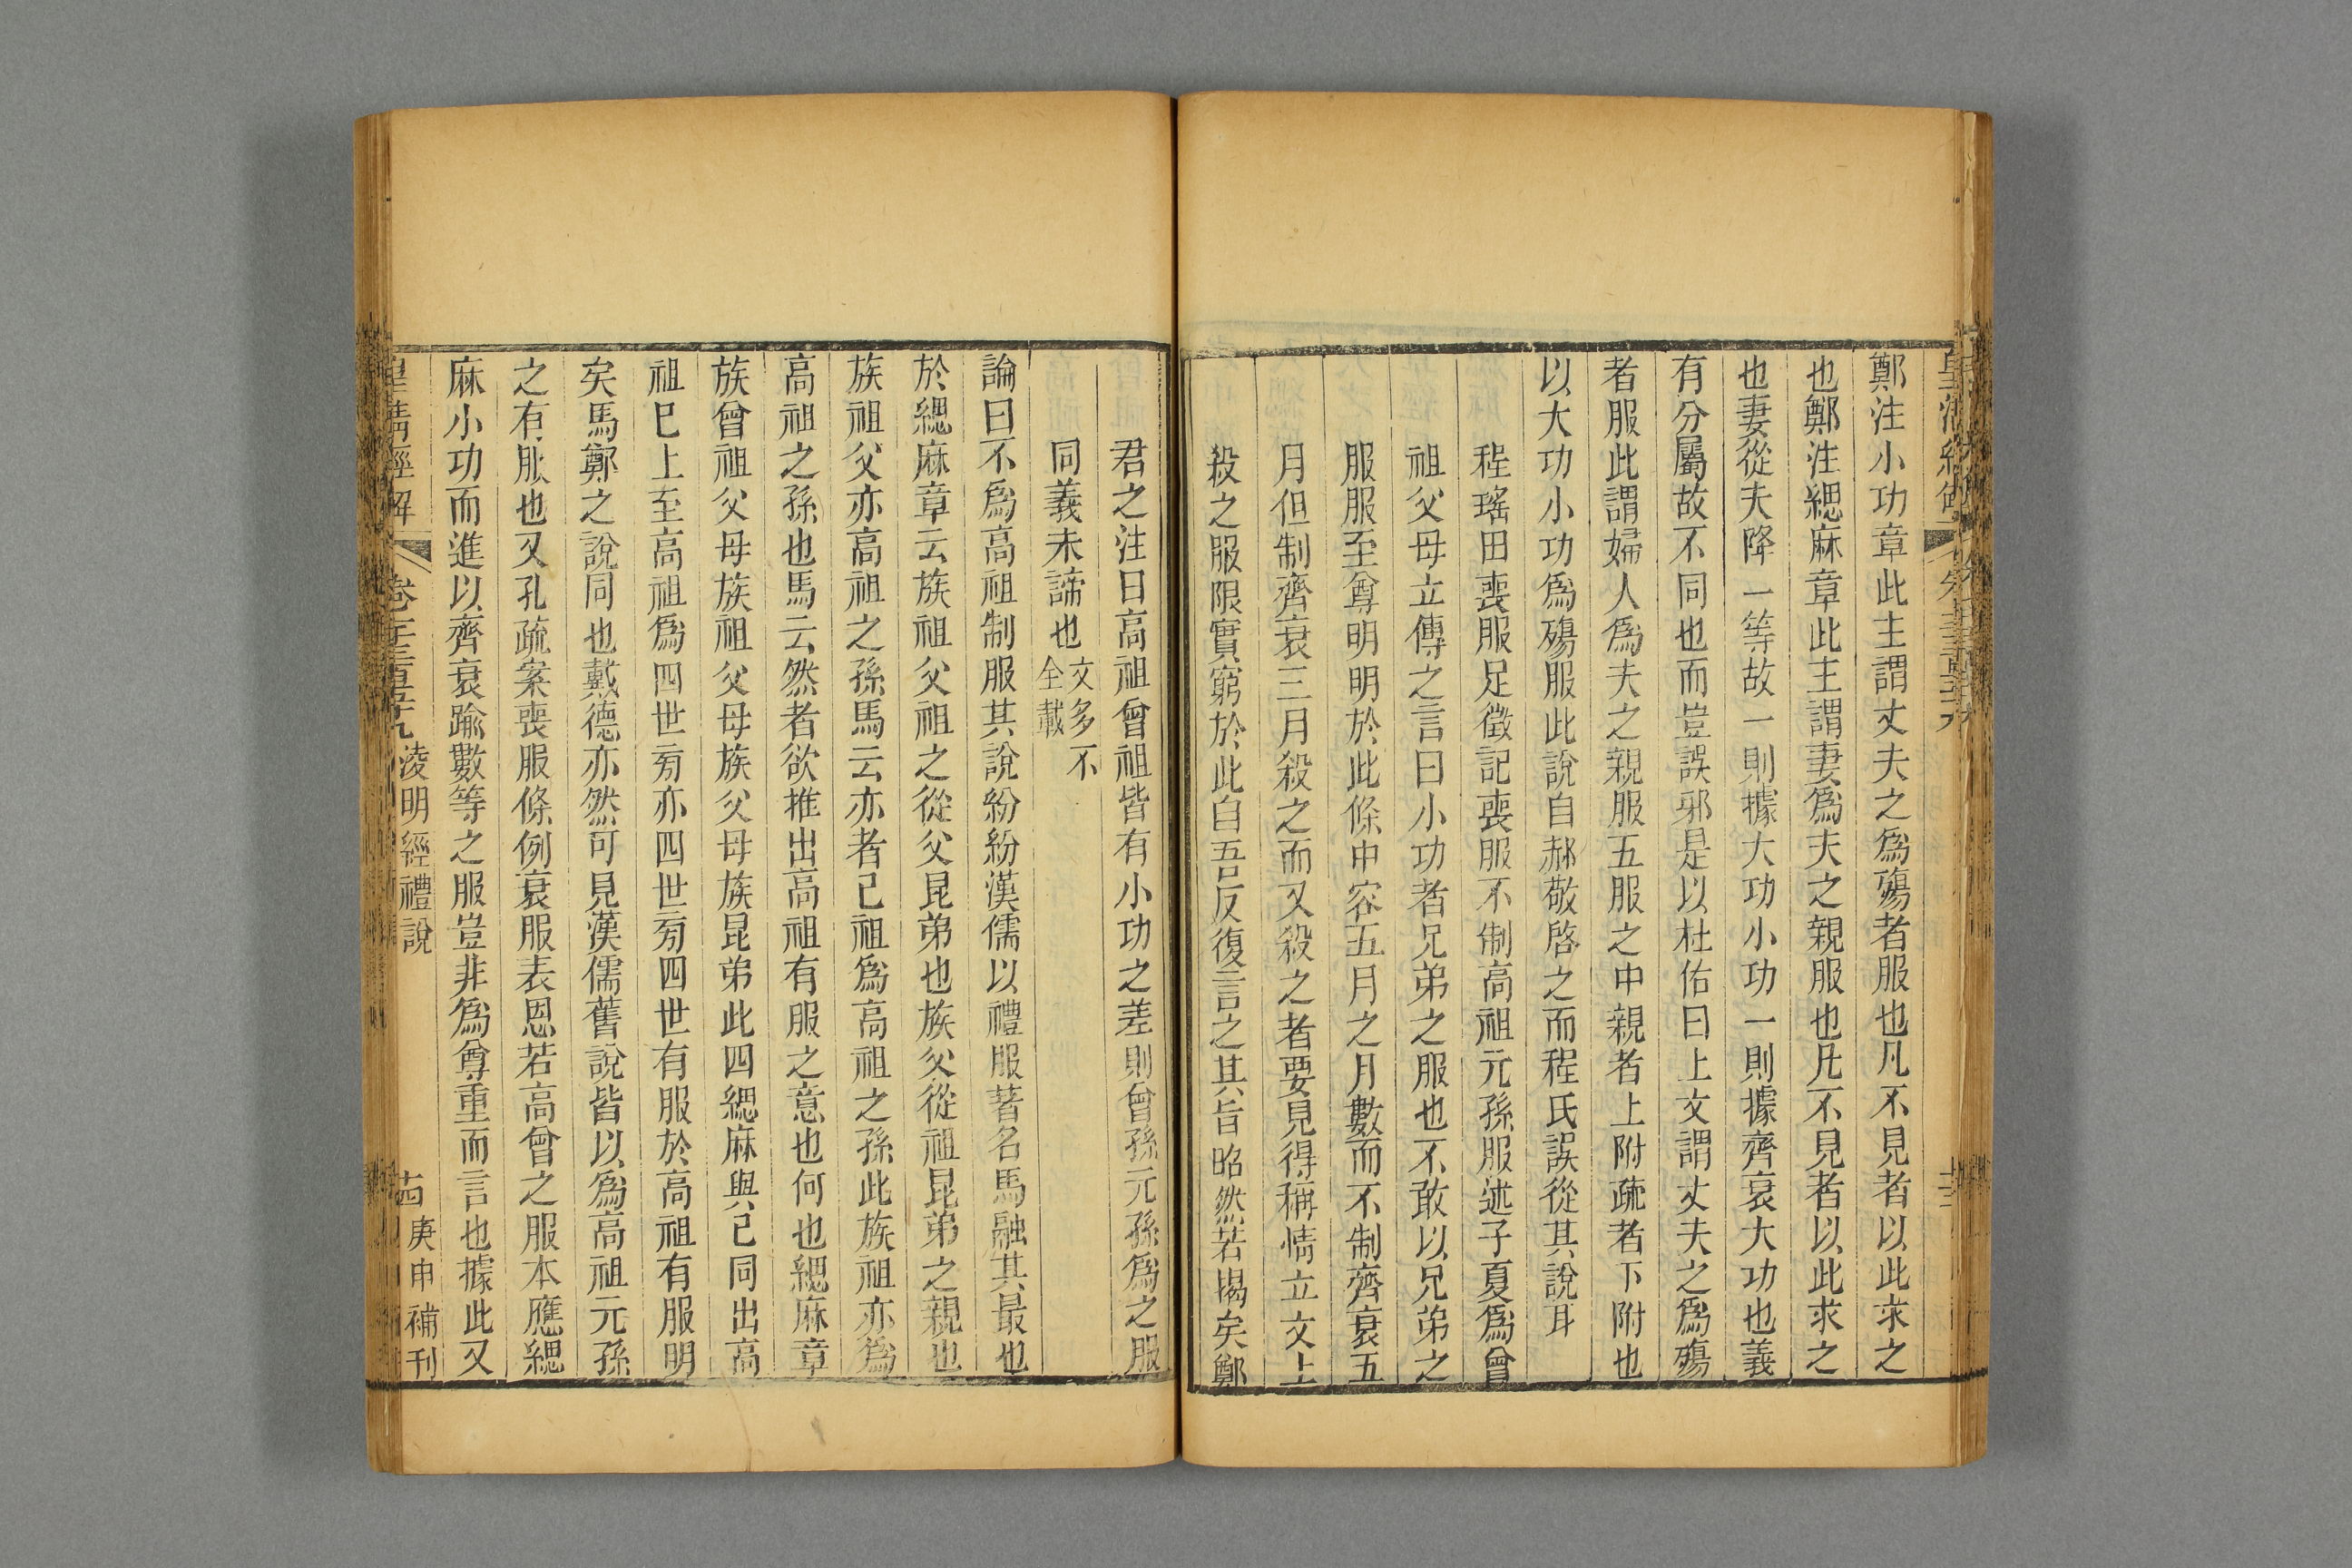 鄭注小功章此主謂丈夫之爲殤者服也凡不見者以此求之
也鄭注緦麻章此主謂妻爲夫之親服也凡不見者以此求之
也妻從夫降一等故一則據大功小功一則據齊衰大功也義
有分屬故不同也而豈誤邪是以杜佑曰上文謂丈夫之爲殤
者服此謂婦人爲夫之親服五服之中親者上附疏者下附也
以大功小功爲殤服此說自郝敬啓之而程氏誤從其說耳
程瑤田喪服足徵記喪服不制高祖元孫服述子夏爲曾
祖父母立傳之言曰小功者兄弟之服也不敢以兄弟之
服服至尊明明於此條中容五月之月數而不制齊衰五
月但制齊衰三月殺之而又殺之者要見得稱情立文上
殺之服限實窮於此自吾反復言之其旨昭然若揭矣鄭
君之注曰高祖曾祖皆有小功之差則曾孫元孫爲之服
同義未諦也文多不全載
論曰不爲高祖制服其說紛紛漢儒以禮服著名馬融其最也
於緦麻章云族祖父祖之從父昆弟也族父從祖昆弟之親也
族祖父亦高祖之孫馬云亦者己祖爲高祖之孫此族祖亦爲
高祖之孫也馬云然者欲推出高祖有服之意也何也緦麻章
族曾祖父母族祖父母族父母族昆弟此四緦麻與己同出高
祖巳上至高祖爲四世旁亦四世旁四世有服於高祖有服明
矣馬鄭之說同也戴德亦然可見漢儒舊說皆以爲高祖元孫
之有服也又孔疏案喪服條例衰服表恩若高曾之服本應緦
麻小功而進以齊衰踰數等之服豈非爲尊重而言也據此又
皇清經解 卷一千三百五十九 淩明經禮說 十四 庚申補刊